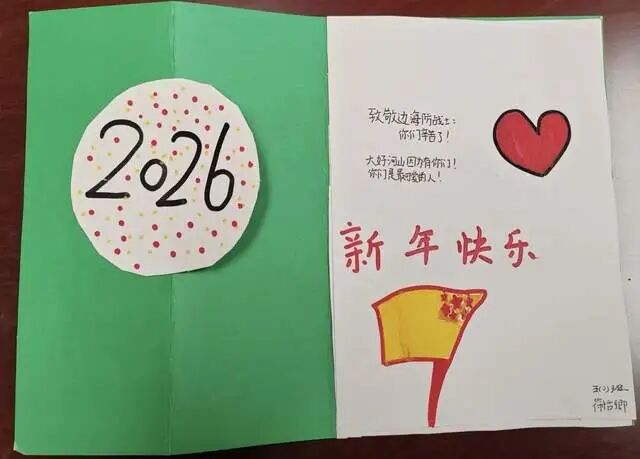 2026
致敬边海防战士:
你们辛苦了!
大好河山因为有你们!
你们是最可爱的人!
新年快乐